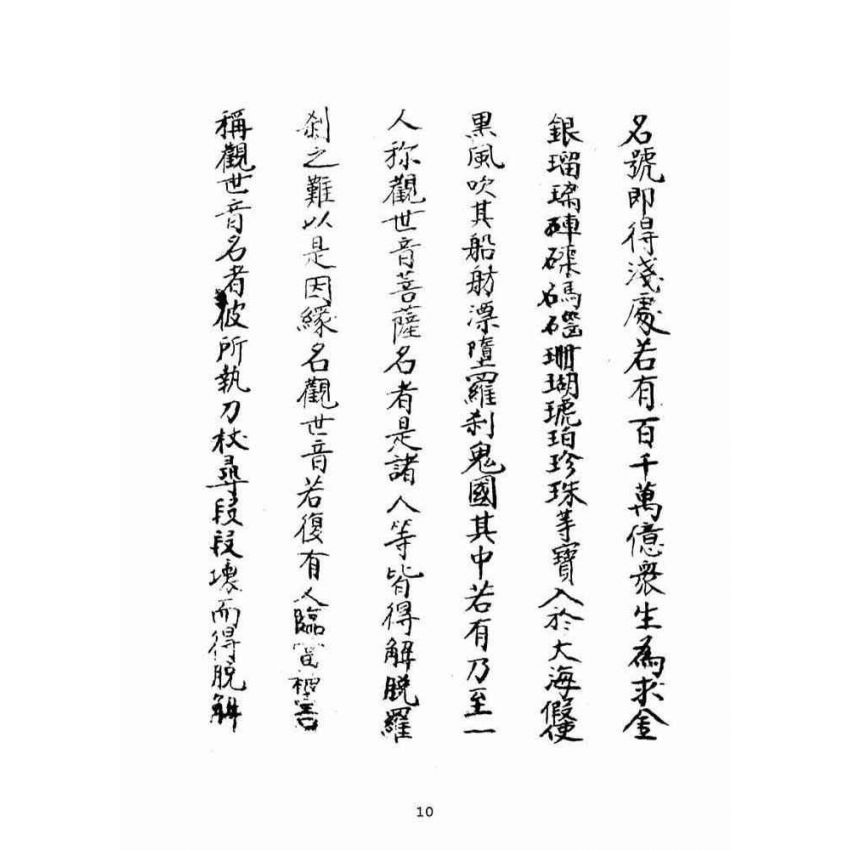 名號即得淺處若有百千萬億衆生為求金
銀瑠璃硨磲碼碯珊瑚琥珀珍珠等寶入於大海假使
黒風吹其船舫漂墮羅刹鬼國其中若有乃至一
人称觀世音菩薩名者是諸人等皆得解脱羅
刹之難以是因緣名觀世音若復有人臨當被害
稱觀世音名者彼所執刀杖尋段段壞而得脱解
10